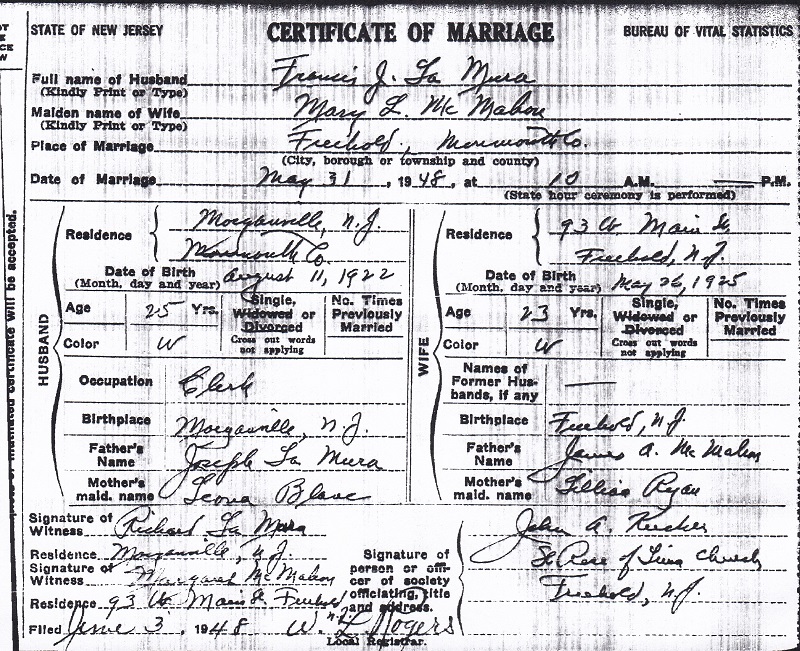 STATE OF NEW JERSEY CERTIFICATE OF MARRIAGE BUREAU OF VITAL STATISTICS
Full name of Husband Francis J. La Mura
(Kindly Print or Type)
Maiden name of Wife Mary L. Mc Mahon
(Kindly Print or Type)
Place of Marriage Freehold, Monmouth Co.
(City, borough or township and county)
Date of Marriage May 31, 1948, at 10 A.M. P.M.
(State hour ceremony is performed)
HUSBAND
Residence Morganville, N.J.
Monmouth Co.
Date of Birth August 11, 1922
(Month, day and year)
Age 25 Yrs. Single, Widowed or Divorced No. Times Previously Married
Color W Cross out words not applying
Occupation Clerk
Birthplace Morganville, N.J.
Father's Name Joseph La Mura
Mother's maid. name Leona
WIFE
Residence 93 W. Main St.
Freehold, N.J.
Date of Birth May 26, 1925
(Month, day and year)
Age 23 Yrs. Single, Widowed or Divorced No. Times Previously Married
Color W Cross out words not applying
Names of Former Husbands, if any —
Birthplace Freehold, N.J.
Father's Name James A. Mc Mahon
Mother's maid. name Ryan
Signature of Witness Richard La Mura
Residence Morganville, N.J.
Signature of Witness Margaret Mc Mahon
Residence 93 W. Main St. Freehold N.J.
Filed June 3, 1948 W. L. Rogers
Local Registrar.
Signature of person or officer of society officiating, title and address.
John A.
St Rose of Lima Church
Freehold, N.J.
certificate will be accepted.